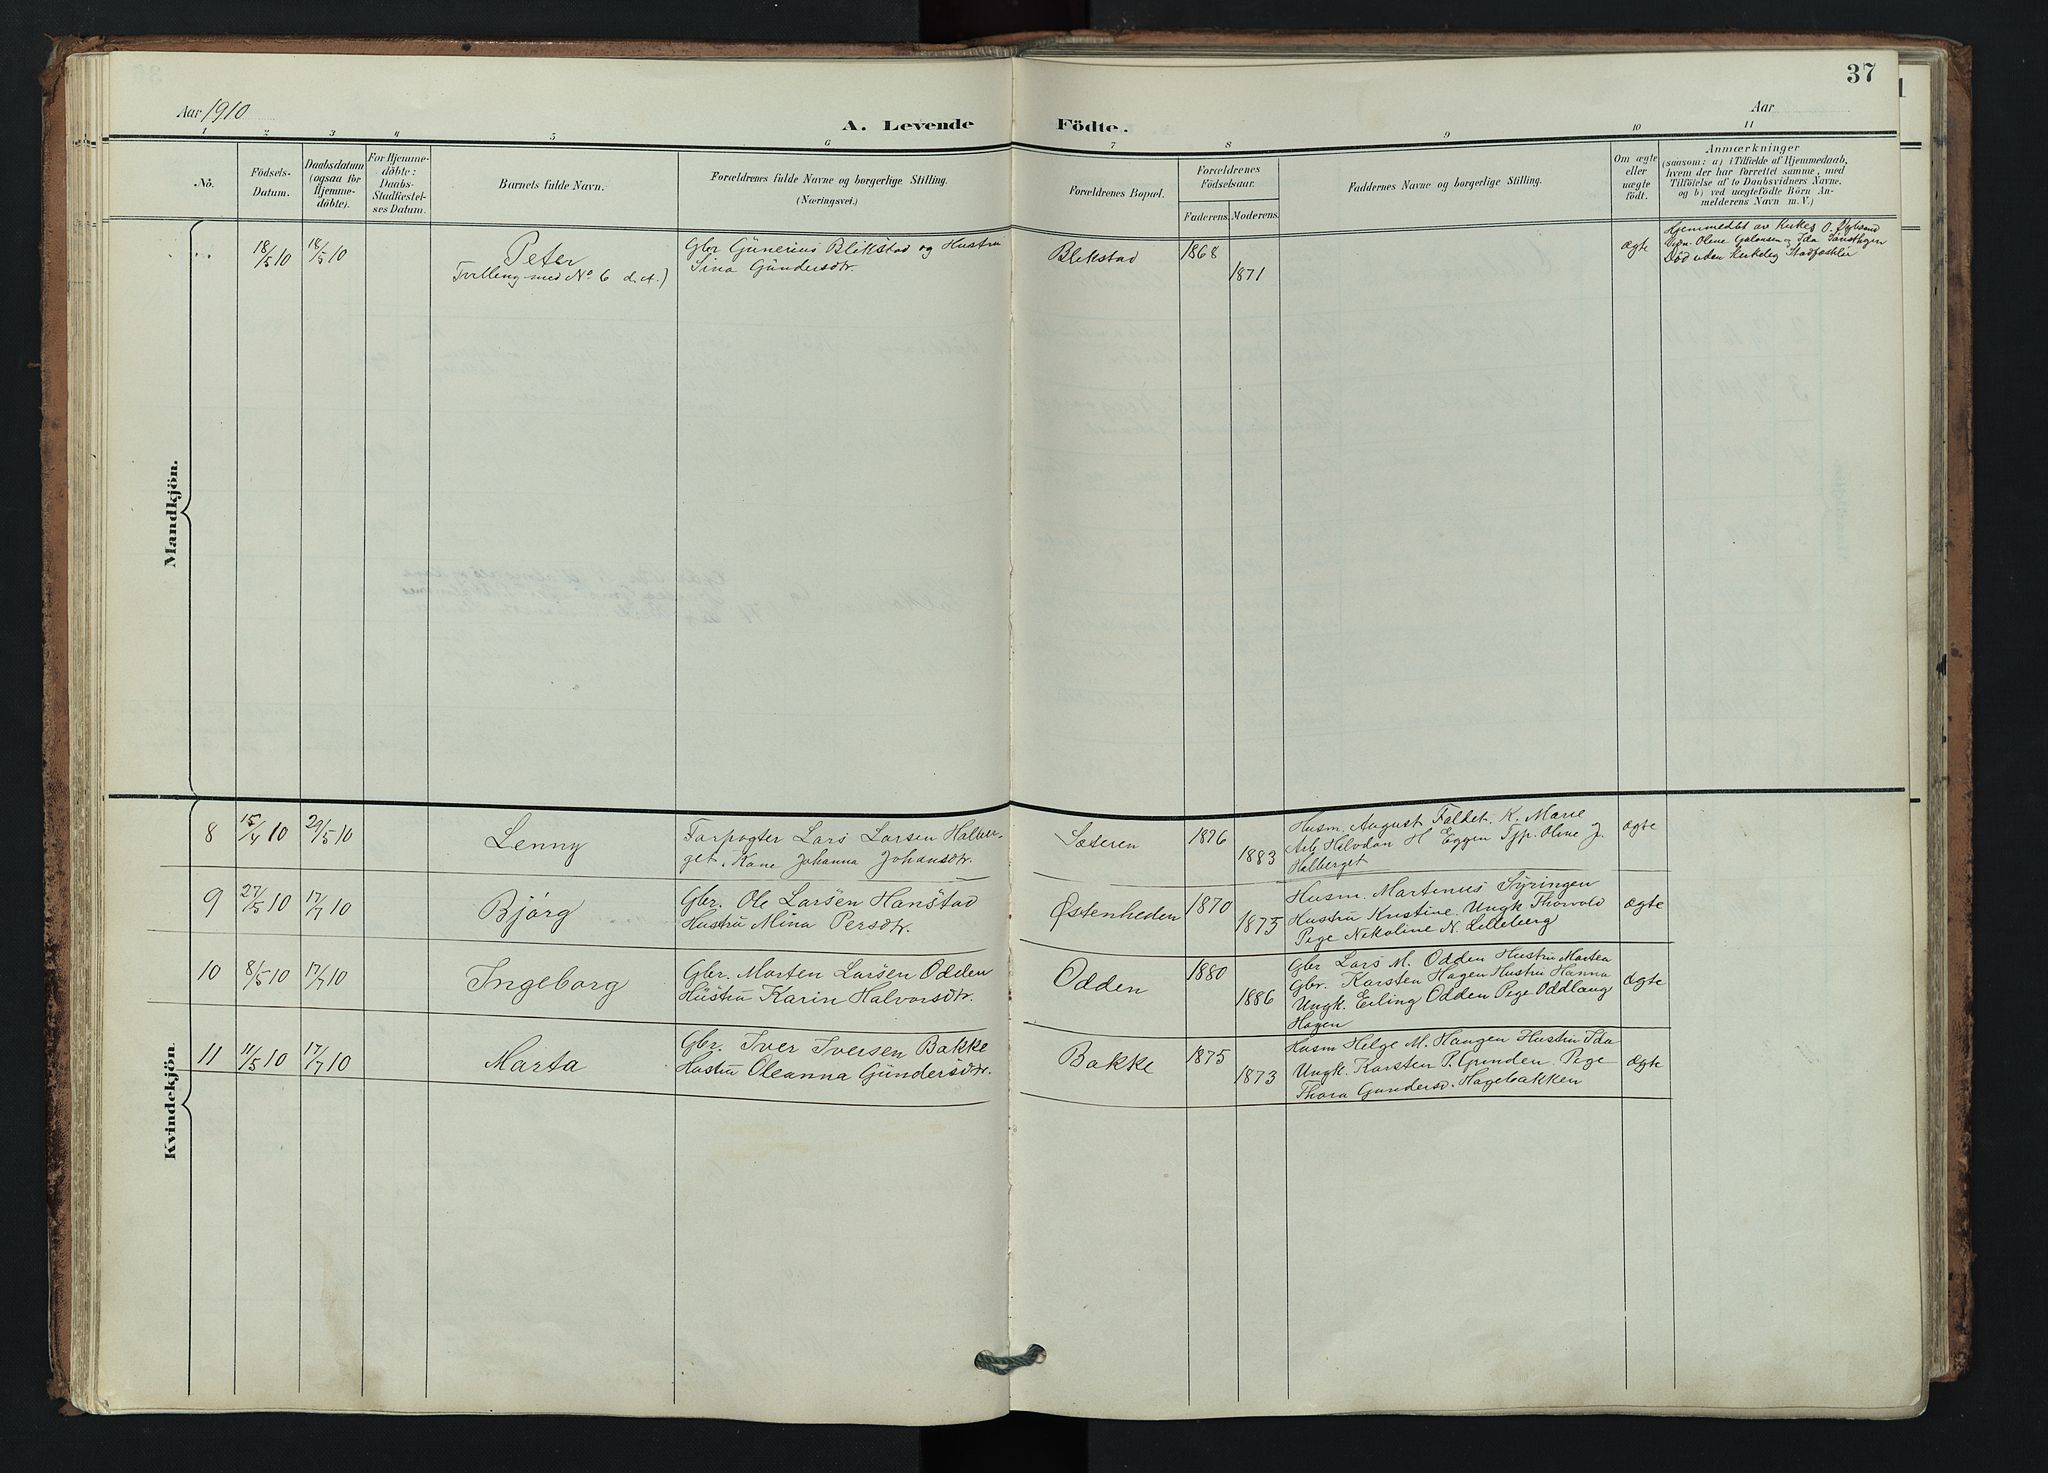 37
Aar 1910
Aar
A. Levende Födte.
1 2 3 4 5 6 7 8 9 10 11
No.
Födsels-
Datum.
Daabsdatum
(ogsaa for
Hjemme-
döbte).
For Hjemme-
döbte:
Daabs-
Stadfæstel-
ses Datum.
Barnets fulde Navn.
Forældrenes fulde Navne og borgerlige Stilling.
(Næringsvei.)
Forældrenes Bopæl.
Forældrenes
Födselsaar.
Faderens. Moderens.
Faddernes Navne og borgerlige Stilling.
Om ægte
eller
uægte
födt.
Anmærkninger
(saasom: a) i Tilfælde af Hjemmedaab,
hvem der har forrettet samme, med
Tilföielse af to Daabsvidners Navne,
og b) ved uægtefödte Börn An-
melderens Navn m. V.)
Mandkjön.
18/5 10
18/5 10
Peter
Tvilling med No 6 d. A.)
Gbr Gunerius Blikstad og Hustru
Sina Gundersdtr.
Blikstad
1868
1871
ægte
Hjemmedbt av Kirkes O.
Olene og Ida
Død uden Kirkelig
Kvindekjön.
8
15/4 10
29/5 10
Lenny
Forpagter Lars Larsen Halber-
get. Kone Johanna Johansdtr.
Sæteren
1876
1883
Husm. August Faldet. K. Marie
Arb. Halvdan H Eggen Tjp. Oline J.
Halberget
ægte
9
27/5 10
17/7 10
Bjørg
Gbr. Ole Larsen Hanstad
Hustru Mina Persdtr.
Østenheden
1870
1875
Husm. Martinus Syringen
Hustru Kristine. Ungk. Thorvald
Pige Nikoline N. Lilleberg
Ægte
10
8/5 10
17/7 10
Ingeborg
Gbr. Morten Larsen Odden
Hustru Karin Halvorsdtr.
Odden
1880
1886
Gbr Lars M. Odden Hustru Martea
Gbr. Karsten Hagen Hustru Hanna
Ungk. Erling Odden Pige Oddlaug
Hagen
Ægte
11
11/5 10
17/7 10
Marta
Gbr. Iver Iversen Bakke
Hustru Oleanna Gundersdtr.
Bakke
1875
1873
Husm Helge M. Haugen Hustru Ida
Ungk. Karsten P. Grinden. Pige
Thora Gundersd. Hagebakken
Ægte